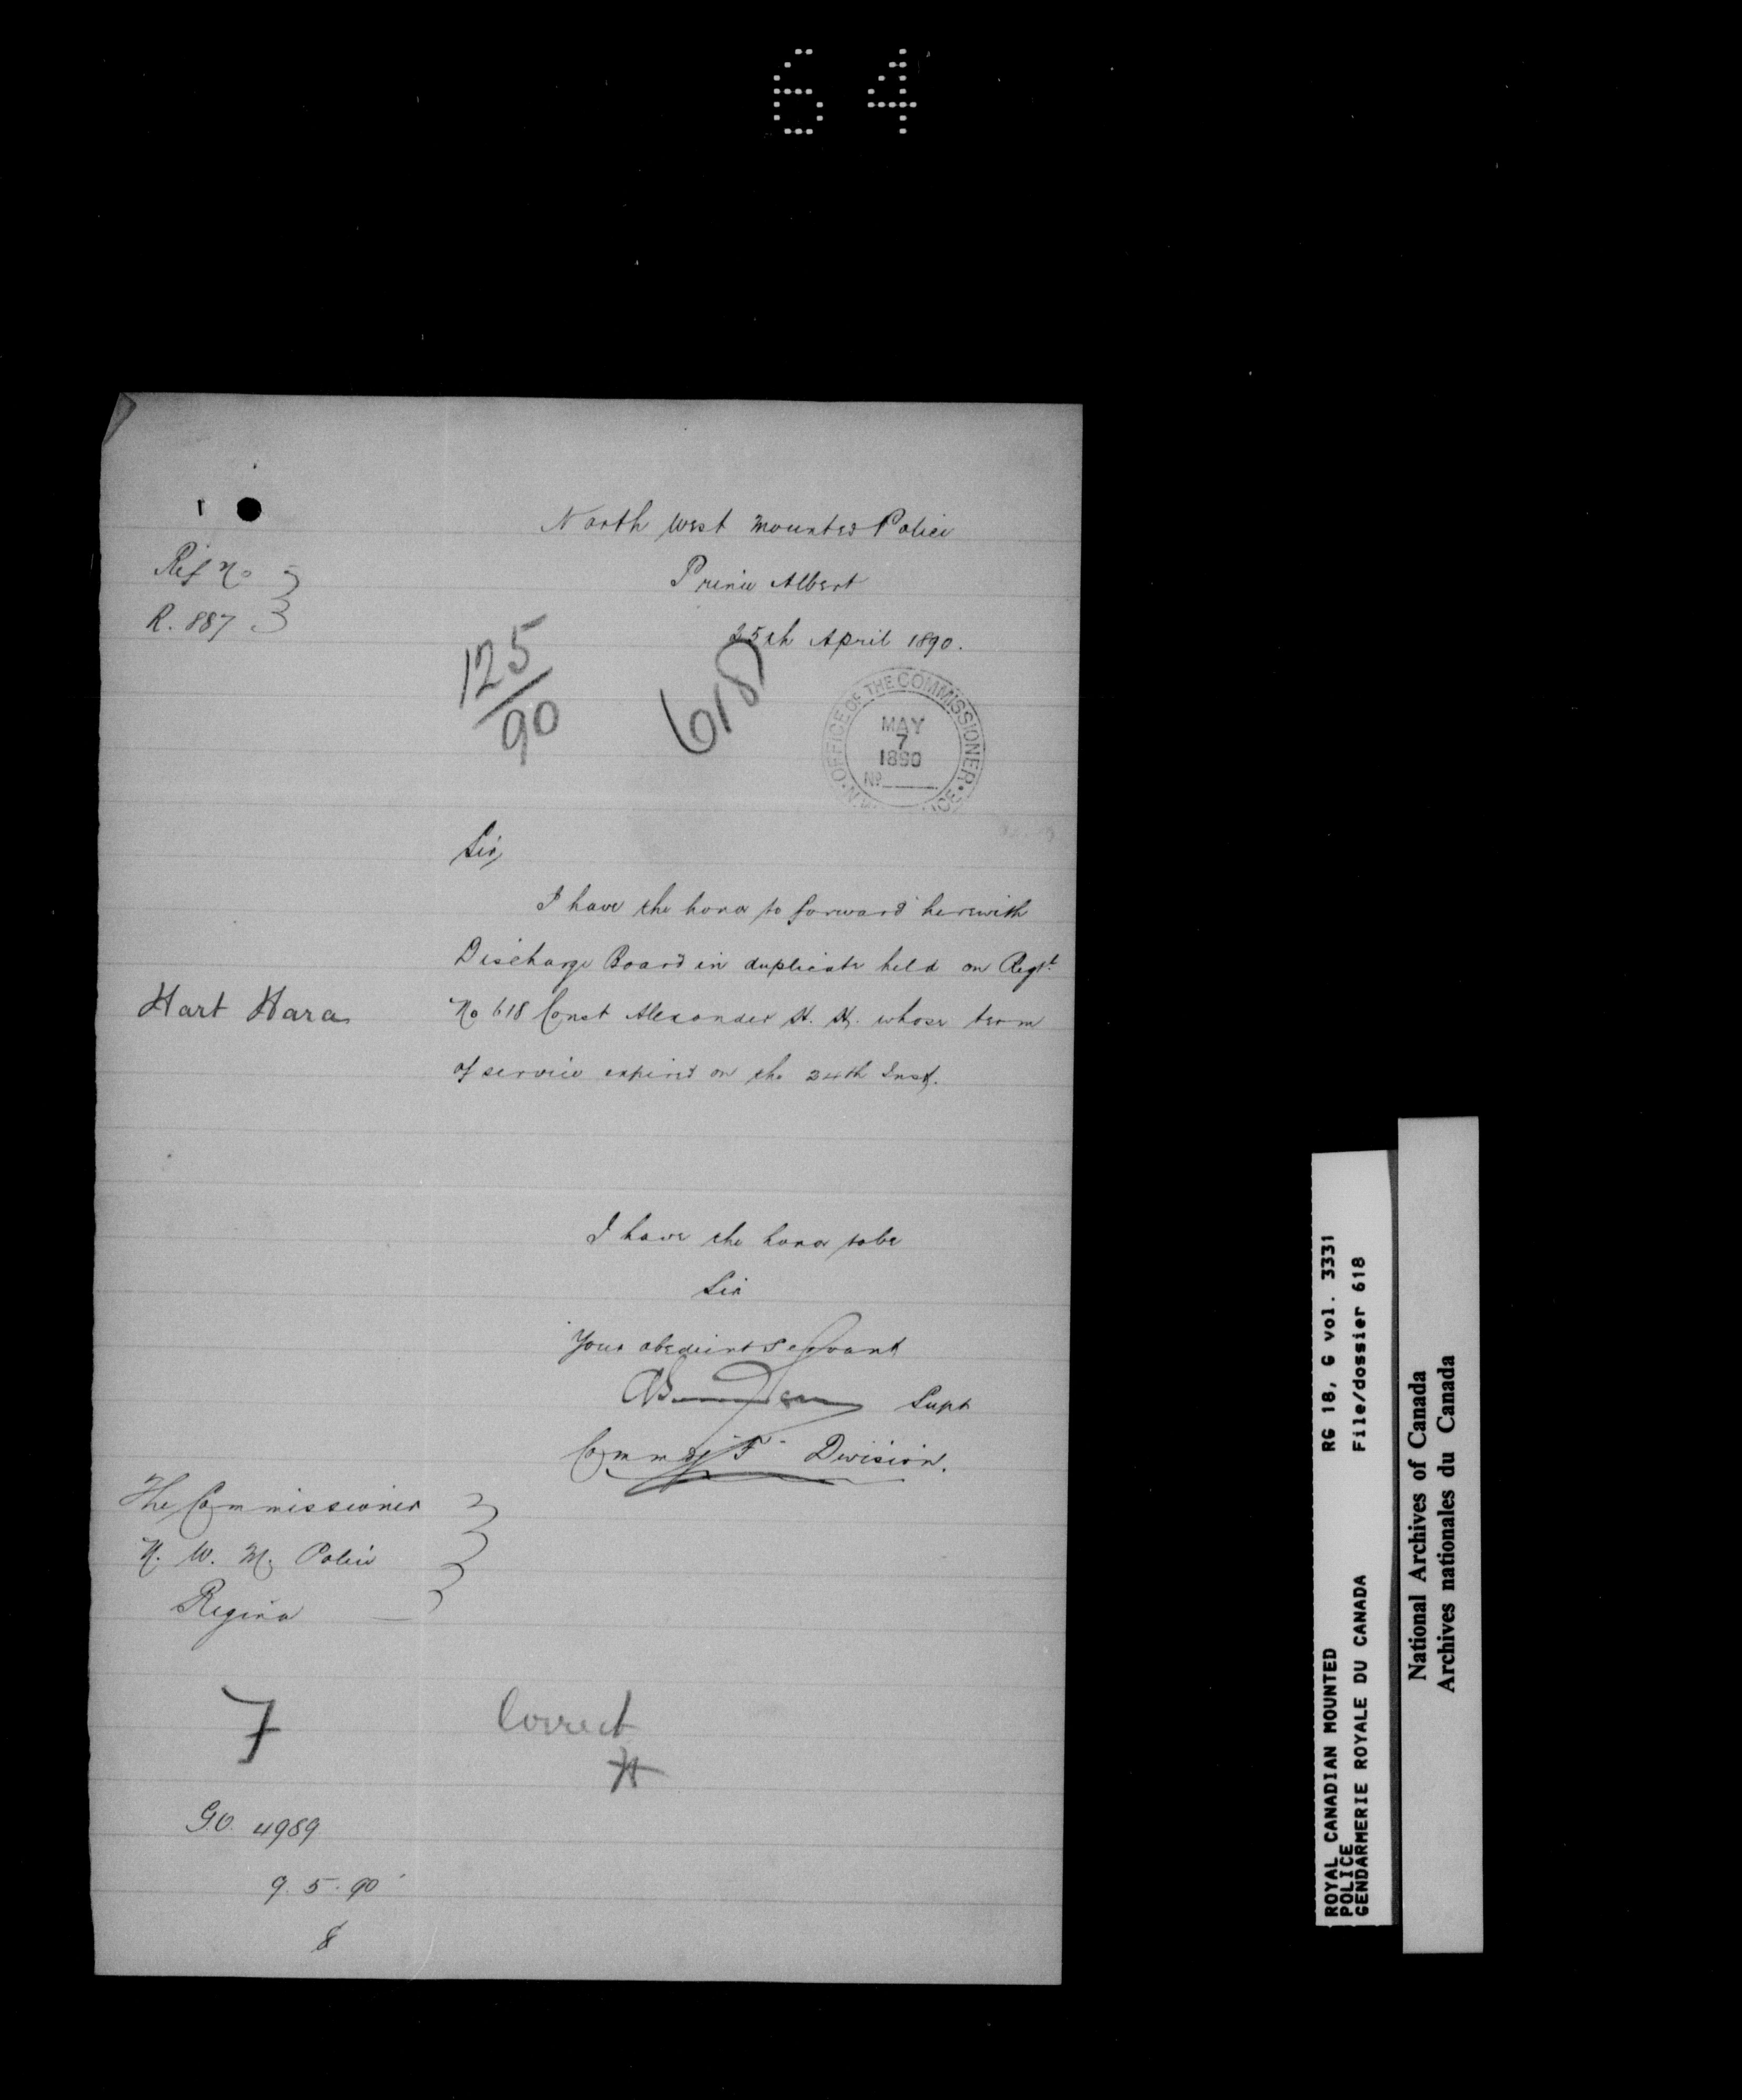 64
North West Mounted Police
Ref No
Prince Albert
R. 887
25th April 1890.
125
90
618
OFFICE OF THE COMMISSIONER
MAY
7
1890
No
Sir,
I have the honor to forward herewith
Discharge Board in duplicate held on Regt.
Hart Hara
No 618 Const Alexander H. H. whose term
of service expired on the 24th Inst.
I have the honor to be
Sir
Your obedient Servant
Supt
Comm'g "F" Division.
The Commissioner
N. W. M. Police
Regina
7
Correct
G.O. 4989
9. 5. 90
ROYAL CANADIAN MOUNTED
POLICE
GENDARMERIE ROYALE DU CANADA
RG 18, G vol. 3331
File/dossier 618
National Archives of Canada
Archives nationales du Canada